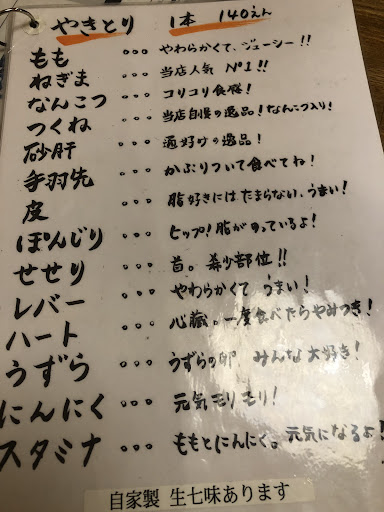 やきとり 1本 140えん
もも ••• やわらかくて、ジューシー!!
ねぎま ••• 当店人気 No1!!
なんこつ ••• コリコリ食感!
つくね ••• 当店自慢の逸品!なんこつ入り!
砂肝 ••• 通好けの逸品!
手羽先 ••• かぶりついて食べてね!
皮 ••• 脂好きにはたまらない、うまい!
ぼんじり ••• ヒップ!脂がのっているよ!
せせり ••• 首。希少部位!!
レバー ••• やわらかくてうまい!
ハート ••• 心臓。一度食べたらやみつき!
うずら ••• うずらの卵 みんな大好き!
にんにく ••• 元気モリモリ!
スタミナ ••• ももとにんにく。元気になるよ!
自家製 生七味あります